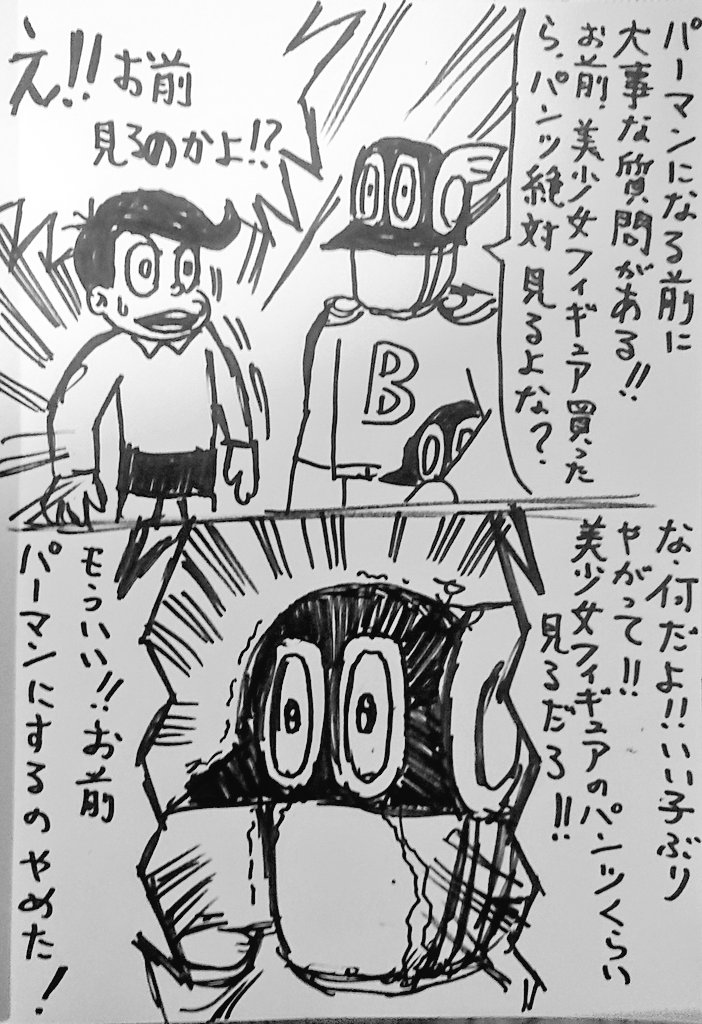 パーマンになる前に
大事な質問がある!!
お前、美少女フィギュア買った
ら、パンツ絶対見るよな?
え!!お前
見るのかよ!?
B
な、何だよ!!いい子ぶり
やがって!!
美少女フィギュアのパンツくらい
見るだろ!!
もういい!!お前
パーマンにするのやめた!